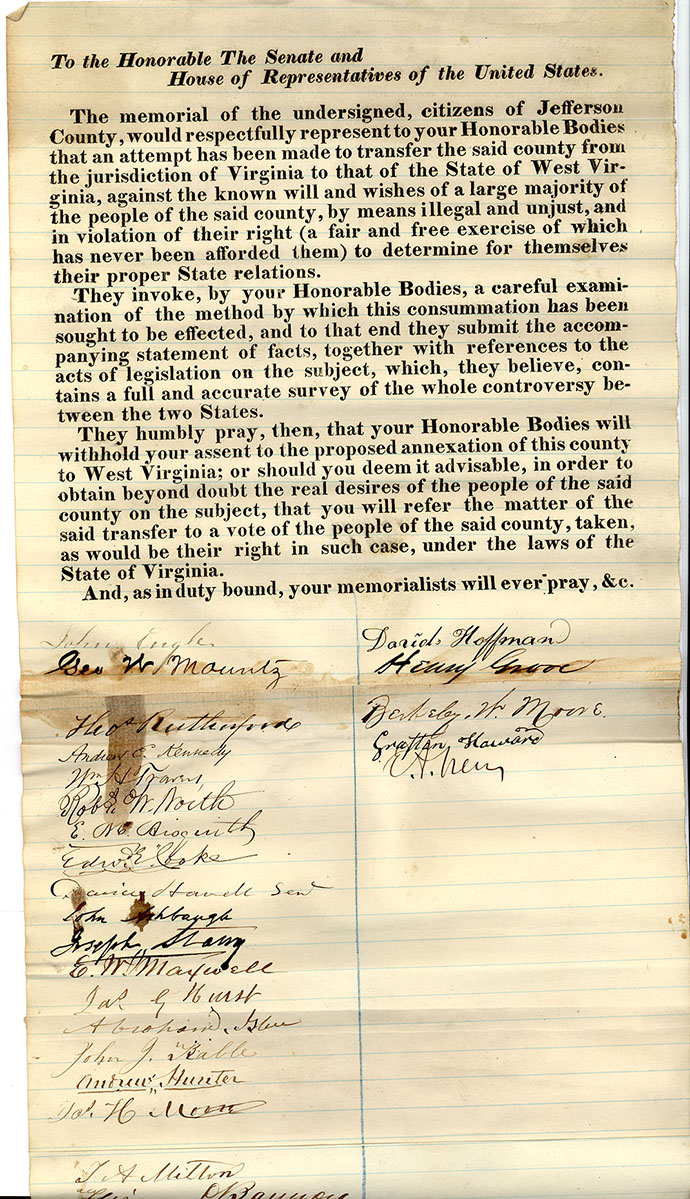 To the Honorable The Senate and
House of Representatives of the United States.
The memorial of the undersigned, citizens of Jefferson
County, would respectfully represent to your Honorable Bodies
that an attempt has been made to transfer the said county from
the jurisdiction of Virginia to that of the State of West Vir-
ginia, against the known will and wishes of a large majority of
the people of the said county, by means illegal and unjust, and
in violation of their right (a fair and free exercise of which
has never been afforded them) to determine for themselves
their proper State relations.
They invoke, by your Honorable Bodies, a careful exami-
nation of the method by which this consummation has been
sought to be effected, and to that end they submit the accom-
panying statement of facts, together with references to the
acts of legislation on the subject, which, they believe, con-
tains a full and accurate survey of the whole controversy be-
tween the two States.
They humbly pray, then, that your Honorable Bodies will
withhold your assent to the proposed annexation of this county
to West Virginia; or should you deem it advisable, in order to
obtain beyond doubt the real desires of the people of the said
county on the subject, that you will refer the matter of the
said transfer to a vote of the people of the said county, taken,
as would be their right in such case, under the laws of the
State of Virginia.
And, as in duty bound, your memorialists will ever pray, &c.
John Engle
Geo W Mountz
Rutherford
Andrew E. Kennedy
Wm H Travers
Robt W. North
E. M.
Edw E. Cooke
John Ashbaugh
Joseph Starry
E. W. Maxwell
Jas G Hurst
Abraham
John J. Kable
Andrew Hunter
Jas. H Moore
J A Milton
O'Bannon
David Hoffman
Henry Grove
Berkeley W. Moore
Gratton Howard